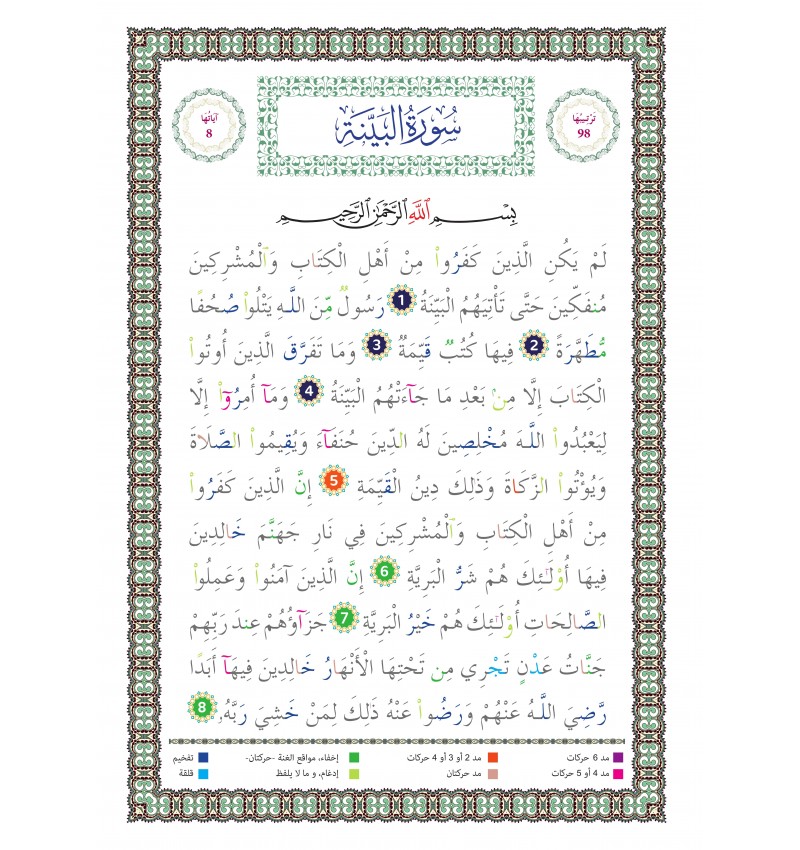 تَرْتِيبُهَا
98
سُورَةُ الْبَيِّنَةِ
آيَاتُهَا
8
بِسْمِ اللَّهِ الرَّحْمَٰنِ الرَّحِيمِ
لَمْ يَكُنِ الَّذِينَ كَفَرُوا۟ مِنْ أَهْلِ الْكِتَابِ وَالْمُشْرِكِينَ
مُنفَكِّينَ حَتَّى تَأْتِيَهُمُ الْبَيِّنَةُ 1 رَسُولٌ مِّنَ اللَّهِ يَتْلُوا۟ صُحُفًا
مُّطَهَّرَةً 2 فِيهَا كُتُبٌ قَيِّمَةٌ 3 وَمَا تَفَرَّقَ الَّذِينَ أُوتُوا۟
الْكِتَابَ إِلَّا مِنۢ بَعْدِ مَا جَآءَتْهُمُ الْبَيِّنَةُ 4 وَمَآ أُمِرُوٓا۟ إِلَّا
لِيَعْبُدُوا۟ اللَّهَ مُخْلِصِينَ لَهُ الدِّينَ حُنَفَآءَ وَيُقِيمُوا۟ الصَّلَاةَ
وَيُؤْتُوا۟ الزَّكَاةَ وَذَلِكَ دِينُ الْقَيِّمَةِ 5 إِنَّ الَّذِينَ كَفَرُوا۟
مِنْ أَهْلِ الْكِتَابِ وَالْمُشْرِكِينَ فِي نَارِ جَهَنَّمَ خَالِدِينَ
فِيهَا أُوْلَٰئِكَ هُمْ شَرُّ الْبَرِيَّةِ 6 إِنَّ الَّذِينَ آمَنُوا۟ وَعَمِلُوا۟
الصَّالِحَاتِ أُوْلَٰئِكَ هُمْ خَيْرُ الْبَرِيَّةِ 7 جَزَآؤُهُمْ عِندَ رَبِّهِمْ
جَنَّاتُ عَدْنٍ تَجْرِي مِن تَحْتِهَا الْأَنْهَارُ خَالِدِينَ فِيهَآ أَبَدًا
رَّضِيَ اللَّهُ عَنْهُمْ وَرَضُوا۟ عَنْهُ ذَلِكَ لِمَنْ خَشِيَ رَبَّهُۥ 8
مد 6 حركات مد 2 أو 3 أو 4 حركات إخفاء، مواقع الغنة -حركتان- تفخيم
مد 4 أو 5 حركات مد حركتان إدغام، و ما لا يلفظ قلقة